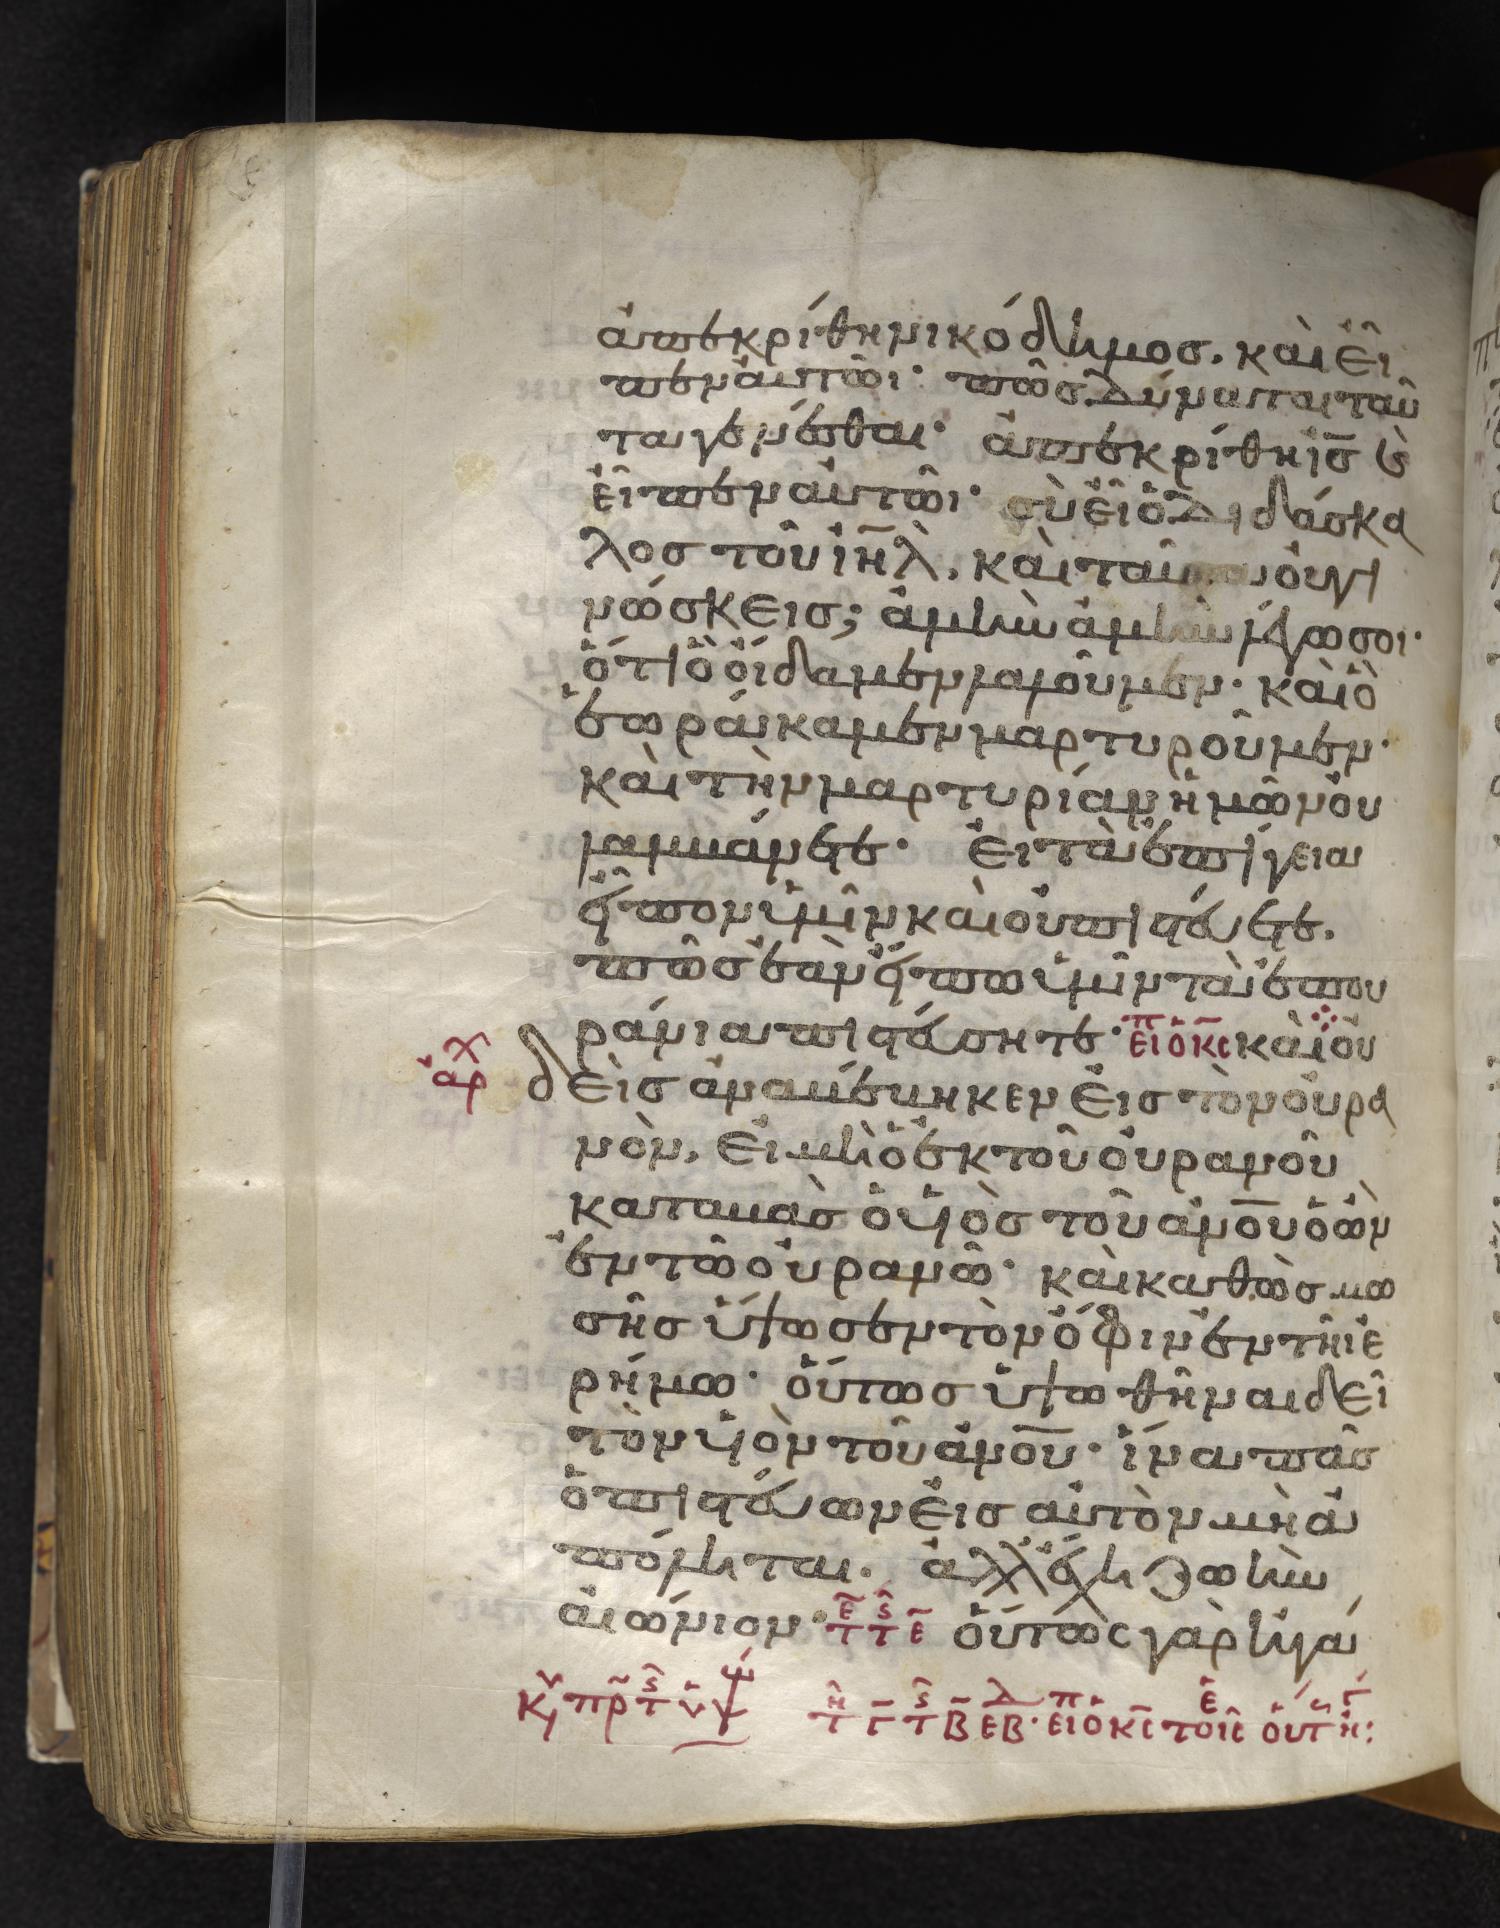 ἀπεκρίθη νικόδημοσ. καὶ εἶ
πεν αὐτῶι· πῶσ δύναται ταῦ
τα γενέσθαι· ἀπεκρίθη ι̅σ̅ ϗ
εἶπεν αὐτῶι· σὺ εἶ ὁ διδάσκα
λοσ τοῦ ι̅η̅λ̅, καὶ ταῦτα οὐ γι
νώσκεισ; ἀμὴν ἀμὴν λέγω σοι·
ὅτι ὃ οἴδαμεν λαλοῦμεν· καὶ ὃ
ἑωράκαμεν μαρτυροῦμεν·
καὶ τὴν μαρτυρίαν ἡμῶν οὐ
λαμβάνετε· εἰ τὰ ἐπίγεια
εἶπον ὑμῖν καὶ οὐ πιστεύετε,
πῶσ ἐὰν εἴπω ὑμῖν τὰ ἐπου
ράνια πιστεύσητε· εἶπ ὁ κ̅ς̅ καὶ οὐ
ἀρχ
δεὶσ ἀναβέβηκεν εἰσ τὸν οὐρα
νὸν, εἰ μὴ ὁ ἐκ τοῦ οὐρανοῦ
καταβὰσ ὁ υἱὸσ τοῦ ἀν̅ο̅υ̅ ὁ ὢν
ἐν τῶ οὐρανῶ· καὶ καθὼσ μω
σῆσ ὕψωσεν τὸν ὄφιν ἐν τῆι ἐ
ρήμω· οὕτωσ ὑψωθῆναι δεῖ
τὸν υἱὸν τοῦ ἀν̅ο̅υ̅· ἵνα πᾶσ
ὁ πιστεύων εἰσ αὐτὸν μὴ ἀ
πόληται. ἀλλ' ἔχη ζωὴν
αἰώνιον· οὕτως γὰρ ἠγά